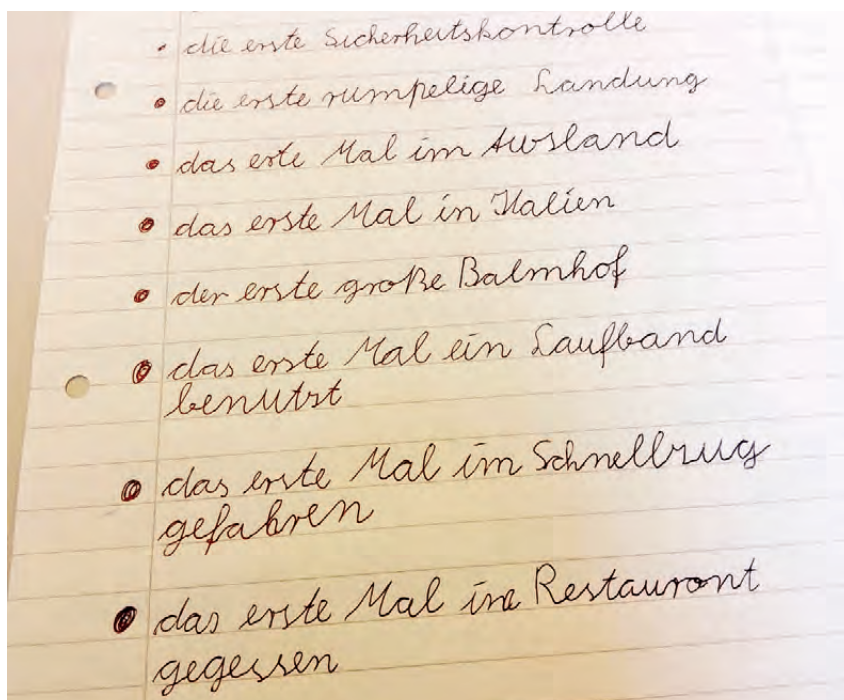 • die erste Sicherheitskontrolle
• die erste rumpelige Landung
• das erte Mal im Ausland
• das erste Mal in Italien
• der erste große Bahnhof
• das erste Mal ein Laufband
benutzt
• das erste Mal im Schnellzug
gefahren
• das erste Mal im Restauront
gegessen